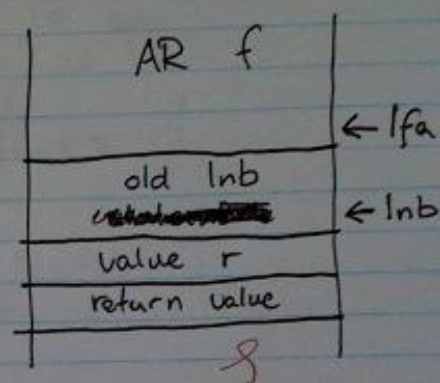 AR f
← lfa
old lnb
← lnb
value r
return value